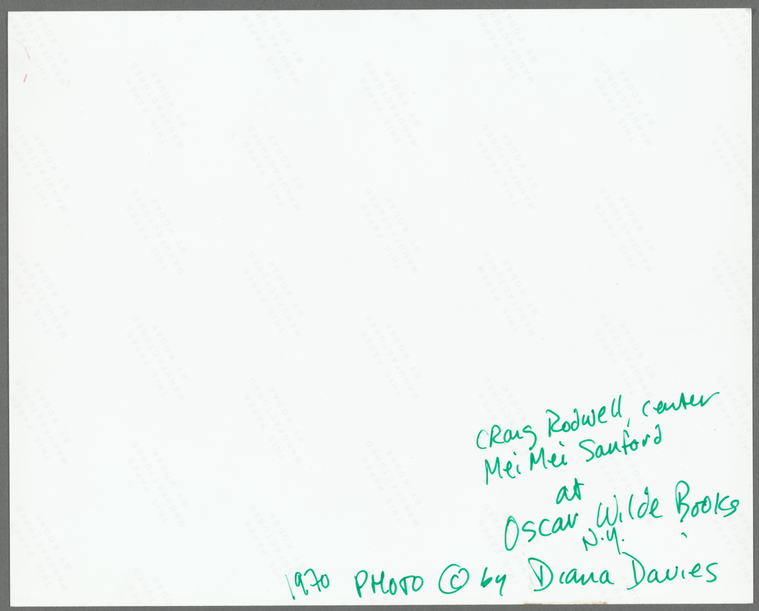 Craig Rodwell, center
Mei Mei Sanford
at
Oscar Wilde Books
N.Y.
1970 PHOTO © by Diana Davies